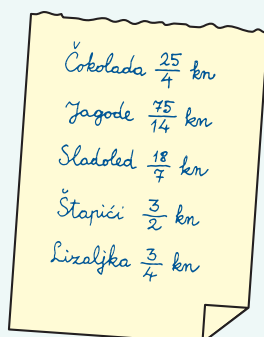 Čokolada 25/4 kn
Jagode 75/14 kn
Sladoled 18/7 kn
Štapići 3/2 kn
Lizaljka 3/4 kn